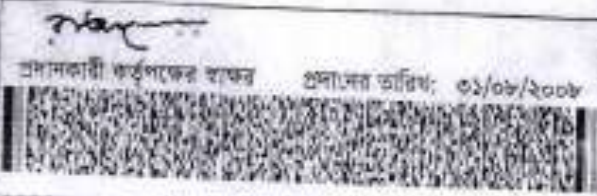 প্রদানকারী কর্তৃপক্ষের স্বাক্ষর প্রদানের তারিখ: ৩১/০৮/২০০৮